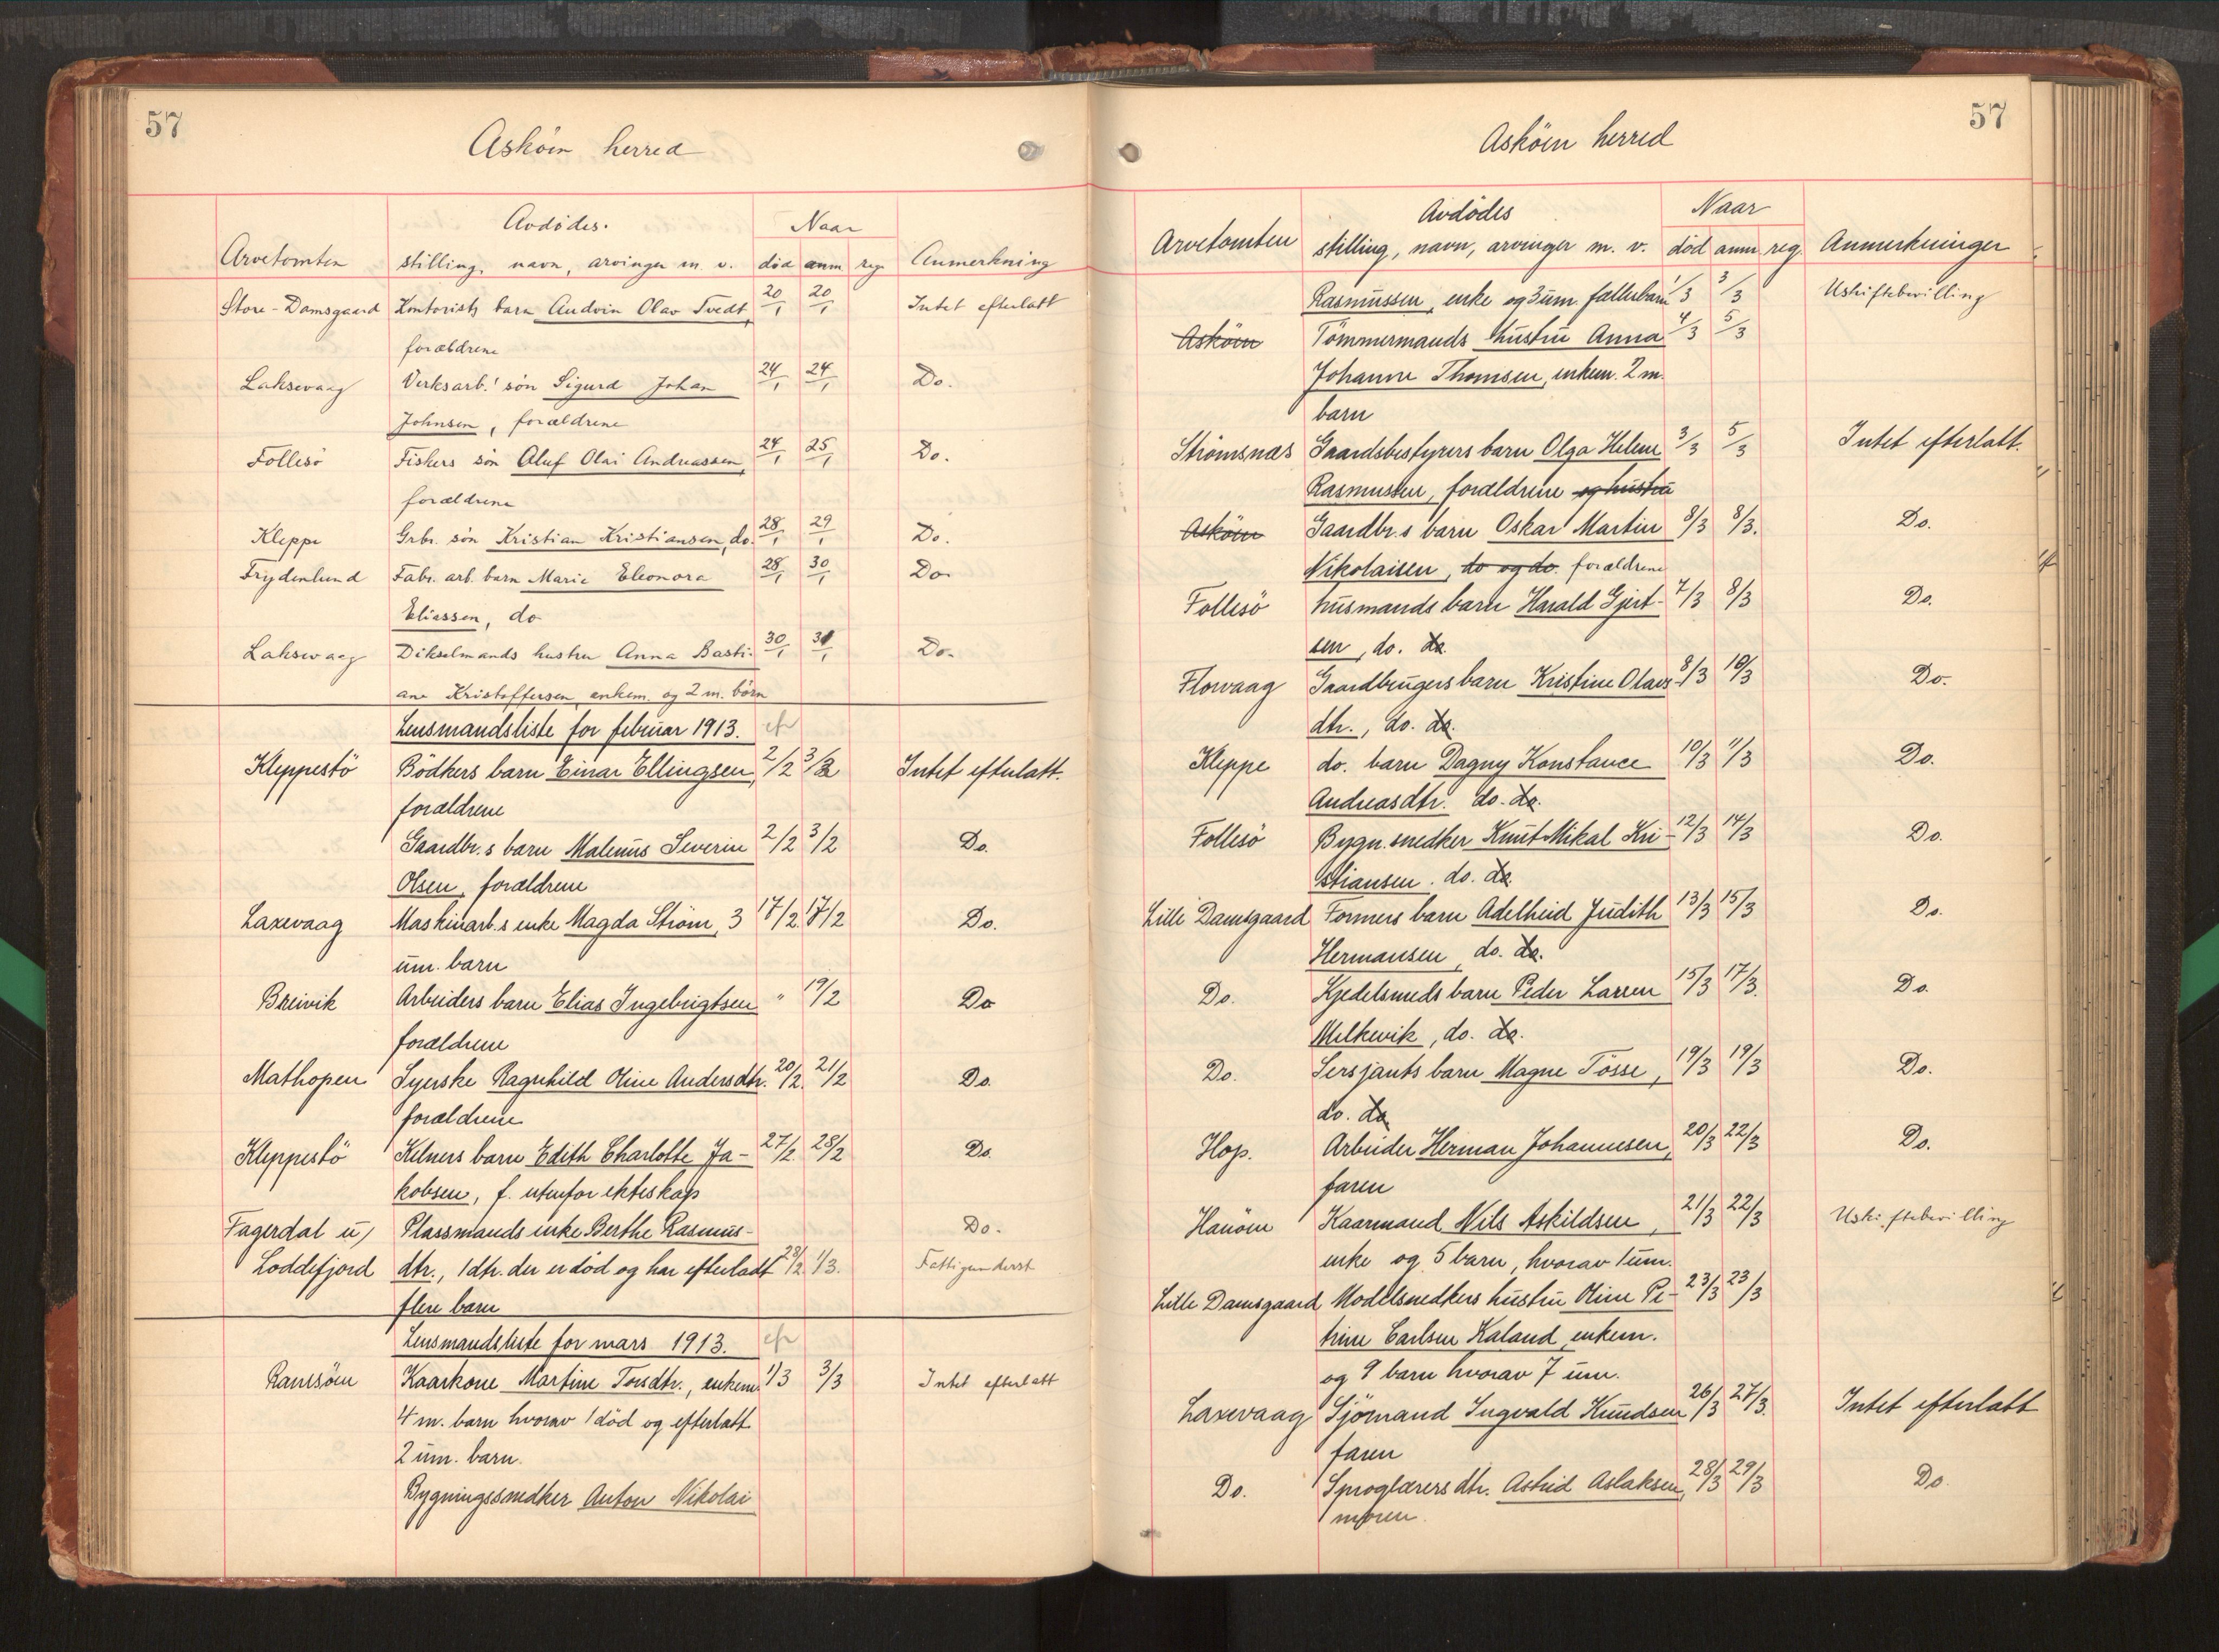 57
Askøen herred
Avdødes. Naar
Arvetomten stilling, navn, arvinger m. v. død anm. reg. Anmerkning
Store-Damsgaard Kontorists barn Audvin Olav Tvedt, 20/1 20/1 Intet efterlatt
forældrene
Laksevaag Verksarb.' søn Sigurd Johan 24/1 24/1 Do.
Johnsen, forældrene
Follesø Fiskers søn Oluf Olai Andreassen, 24/1 25/1 Do.
forældrene
Kleppe Grbr. søn Kristian Kristiansen, do. 28/1 29/1 Do.
Frydenlund Fabr. arb. barn Marie Eleonora 28/1 30/1 Do.
Eliassen, do
Laksevaag Dikselmands hustru Anna Basti- 30/1 31/1 Do.
ane Kristoffersen, enkem. og 2 m. børn
Lensmandsliste for februar 1913.
Kleppestø Bødkers barn Einar Ellingsen, 2/2 3/2 Intet efterlatt.
forældrene
Gaardbr.s barn Malenus Severin 2/2 3/2 Do.
Olsen, forældrene
Laxevaag Maskinarb.s enke Magda Strøm, 3 17/2. 17/2 Do.
um. barn
Breivik Arbeiders barn Elias Ingebrigtsen " 19/2 Do
forældrene
Mathopen Syerske Ragnhild Oline Andersdtr. 20/2. 21/2 Do.
forældrene
Kleppestø Kelners barn Edith Charlotte Ja- 27/2. 28/2 Do.
kobsen, f. utenfor ekteskap
Fagerdal u/ Plassmands enke Berthe Rasmus- Do.
Loddefjord dtr., 1 dtr. der er død og har efterladt 28/2. 1/3. Fattigunderst
flere barn
Lensmandsliste for mars 1913.
Ramsøen Kaarkone Martine Torsdtr., enkem. 1/3 3/3 Intet efterlatt
4 m. barn hvorav 1 død og efterlatt
2 um. barn.
Bygningssnedker Anton Nikolai
57
Askøen herred
Avdødes Naar
Arvetomten stilling, navn, arvinger m. v. død anm. reg. Anmerkninger
Rasmussen, enke og 3 um. fællesbarn 1/3 3/3 Uskiftebevilling
Askøen Tømmermands hustru Anna 4/3 5/3
Johanne Thomsen, enkem. 2 m.
barn
Strømsnæs Gaardsbestyrers barn Olga Helene 3/3 5/3 Intet efterlatt.
Rasmussen, forældrene og hustru
Askøen Gaardbr.s barn Oskar Martin 8/3 8/3. Do.
Nikolaisen, do og do. forældrene
Follesø husmands barn Harald Gjert- 7/3 8/3 Do.
sen, do. do.
Flowaag Gaardbrugers barn Kristine Olavs- 8/3 10/3 Do.
dtr., do. do.
Kleppe do. barn Dagny Konstance 10/3 11/3 Do.
Andreasdtr. do. do.
Follesø Bygn. snedker Knut Mikal Kri- 12/3 14/3 Do.
stiansen. do. do.
Lille Damsgaard Formers barn Adelheid Judith 13/3 15/3 Do.
Hermansen, do. do.
Do. Kjedelsmeds barn Peder Larsen 15/3 17/3. Do.
Melkevik, do. do.
Do. Sersjants barn Magne Tøsse, 19/3 19/3 Do.
do. do
Hop. Arbeider Herman Johannesen, 20/3 22/3 Do.
faren
Hanøen Kaarmand Nils Askildsen, 21/3 22/3 Uskiftebevilling
enke og 5 barn, hvorav 1 um.
Lille Damsgaard Modelsnedkers hustru Oline Pe- 23/3 23/3
trine Carlsen Kaland, enkem.
og 9 barn hvorav 7 um.
Laxevaag Sjømand Ingvald Knudsen 26/3 27/3. Intet efterlatt
faren
Do. Sproglærers dtr. Astrid Aslaksen, 28/3 29/3 Do.
moren.